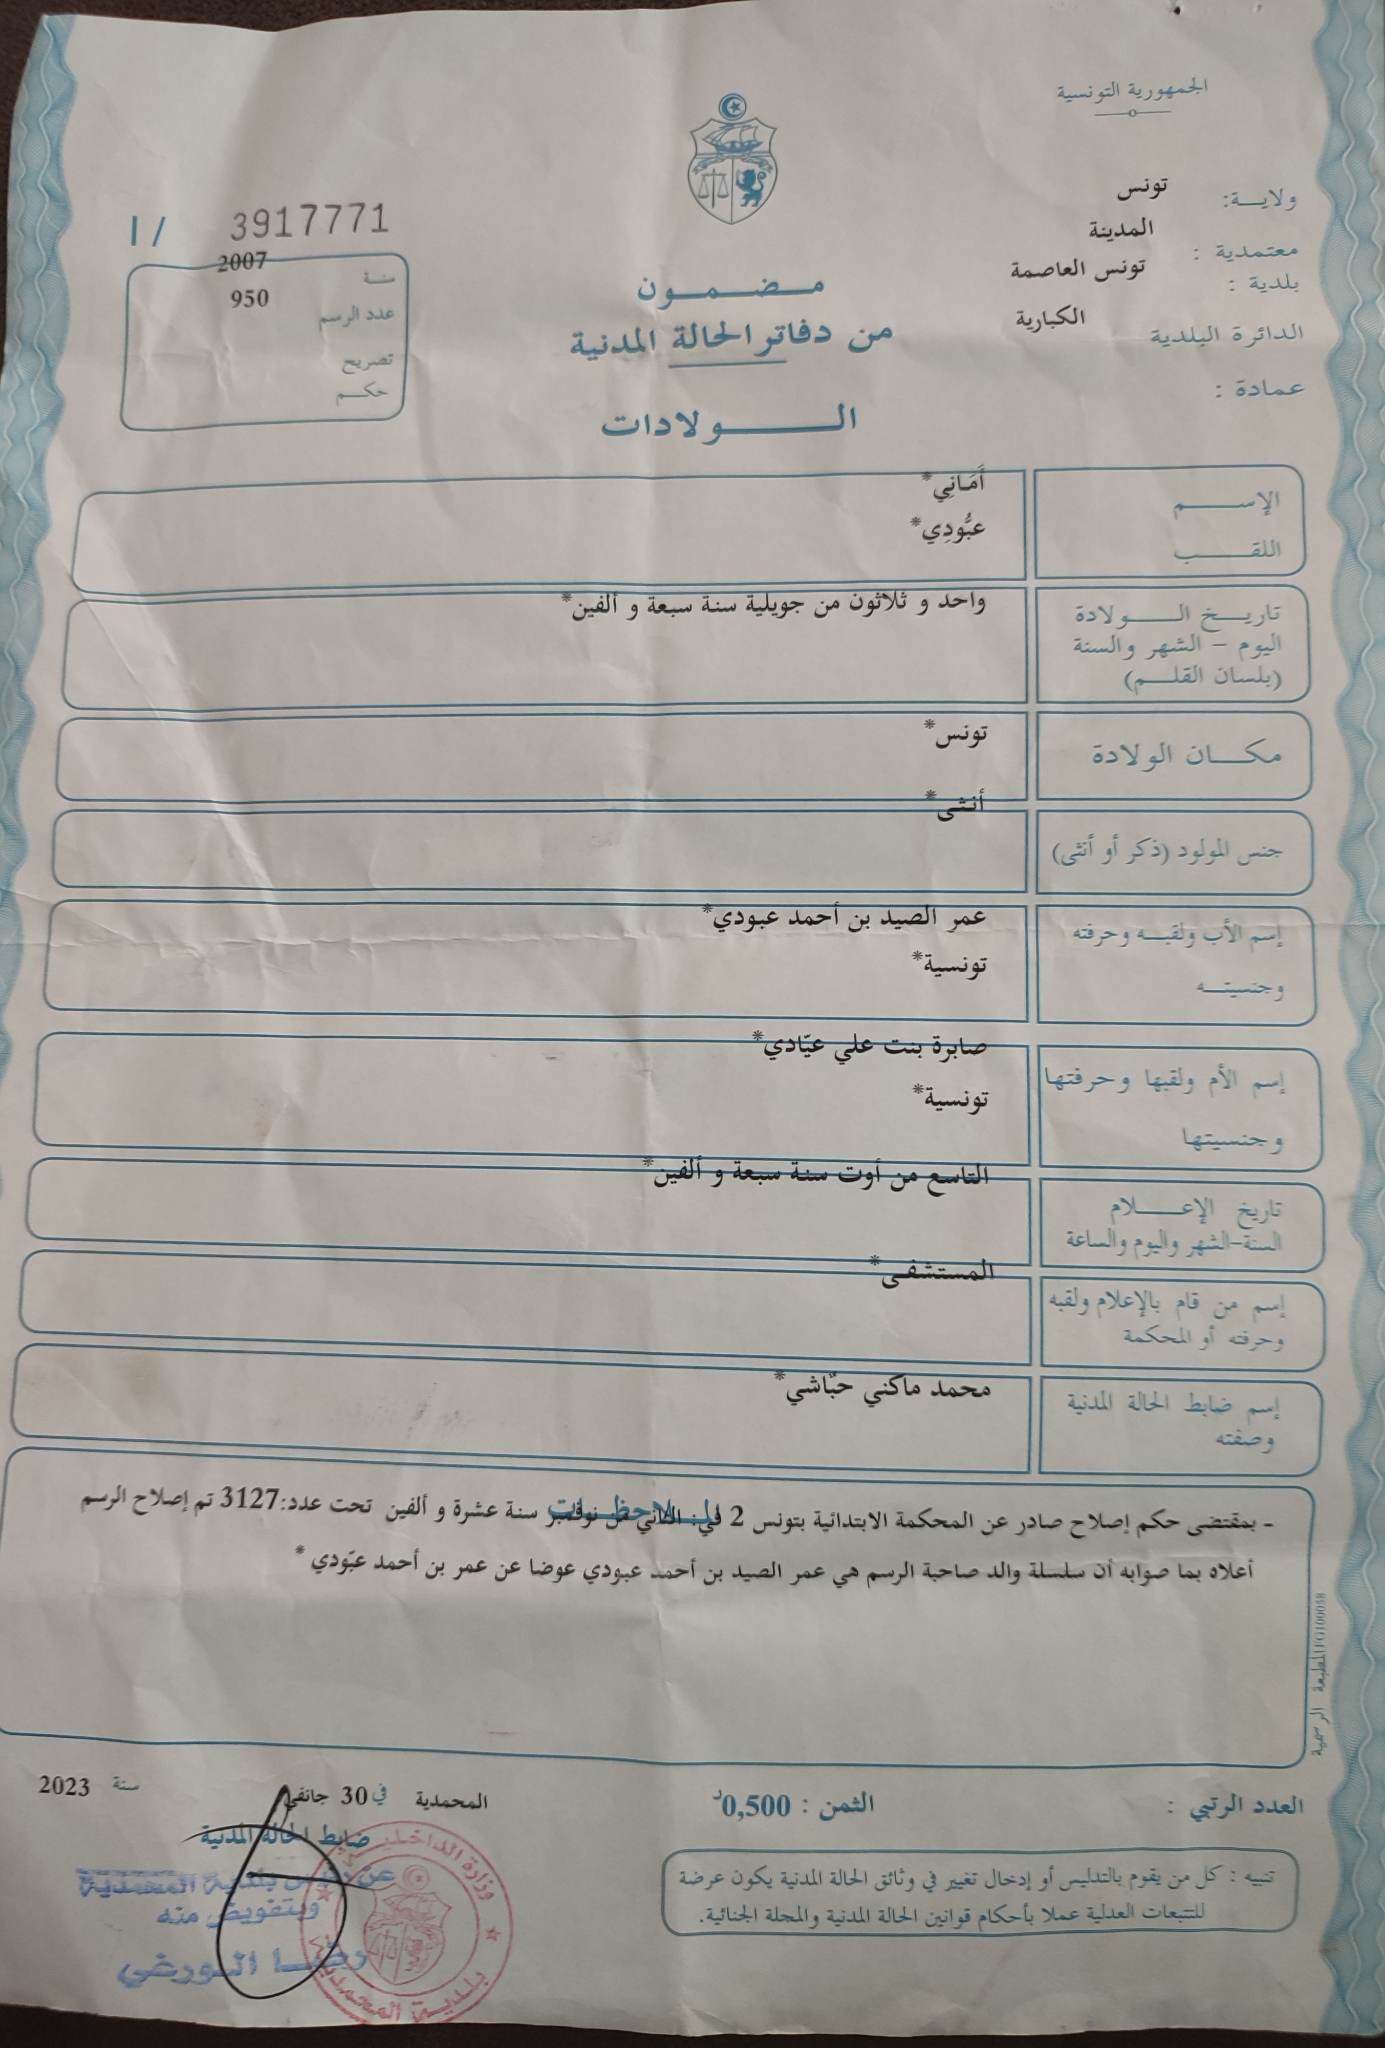 الجمهورية التونسية
ولايـــة: تونس
معتمدية : المدينة
بلدية : تونس العاصمة
الدائرة البلدية الكبارية
عمادة :
مـــضـــمـــون
من دفاتر الحالة المدنية
الــــولادات
1 / 3917771
سنــة 2007
عدد الرسم 950
تصريح
حكــم
الإســـــم أَمَانِي*
اللقـــــب عبُّودِي*
تاريـــخ الـــــولادة واحد و ثلاثون من جويلية سنة سبعة و ألفين*
اليوم – الشهر والسنة
(بلسان القلـــم)
مكـــان الولادة تونس*
جنس المولود (ذكر أو أنثى) أنثى*
إسم الأب ولقبـــه وحرفته عمر الصيد بن أحمد عبودي*
وجنسيتـــه تونسية*
إسم الأم ولقبها وحرفتها صابرة بنت علي عيّادي*
وجنسيتها تونسية*
تاريخ الإعـــــلام التاسع من أوت سنة سبعة و ألفين*
السنة-الشهر واليوم والساعة
إسم من قام بالإعلام ولقبه المستشفى*
وحرفته أو المحكمة
إسم ضابط الحالة المدنية محمد ماكني حبّاشي*
وصفته
المــلاحظــات
- بمقتضى حكم إصلاح صادر عن المحكمة الابتدائية بتونس 2 في: الثاني من نوفمبر سنة عشرة و ألفين تحت عدد:3127 تم إصلاح الرسم
أعلاه بما صوابه أن سلسلة والد صاحبة الرسم هي عمر الصيد بن أحمد عبودي عوضا عن عمر بن أحمد عبّودي *
المطبعة الرسمية FG100058
العدد الرتبي :
الثمن : 0,500د
المحمدية في 30 جانفي سنة 2023
ضابط الحالة المدنية
عن رئيس بلدية المحمدية
وبتفويض منه
رضــا الورضي
وزارة الداخلية
بلدية المحمدية
تنبيه : كل من يقوم بالتدليس أو إدخال تغيير في وثائق الحالة المدنية يكون عرضة
للتتبعات العدلية عملا بأحكام قوانين الحالة المدنية والمجلة الجنائية.